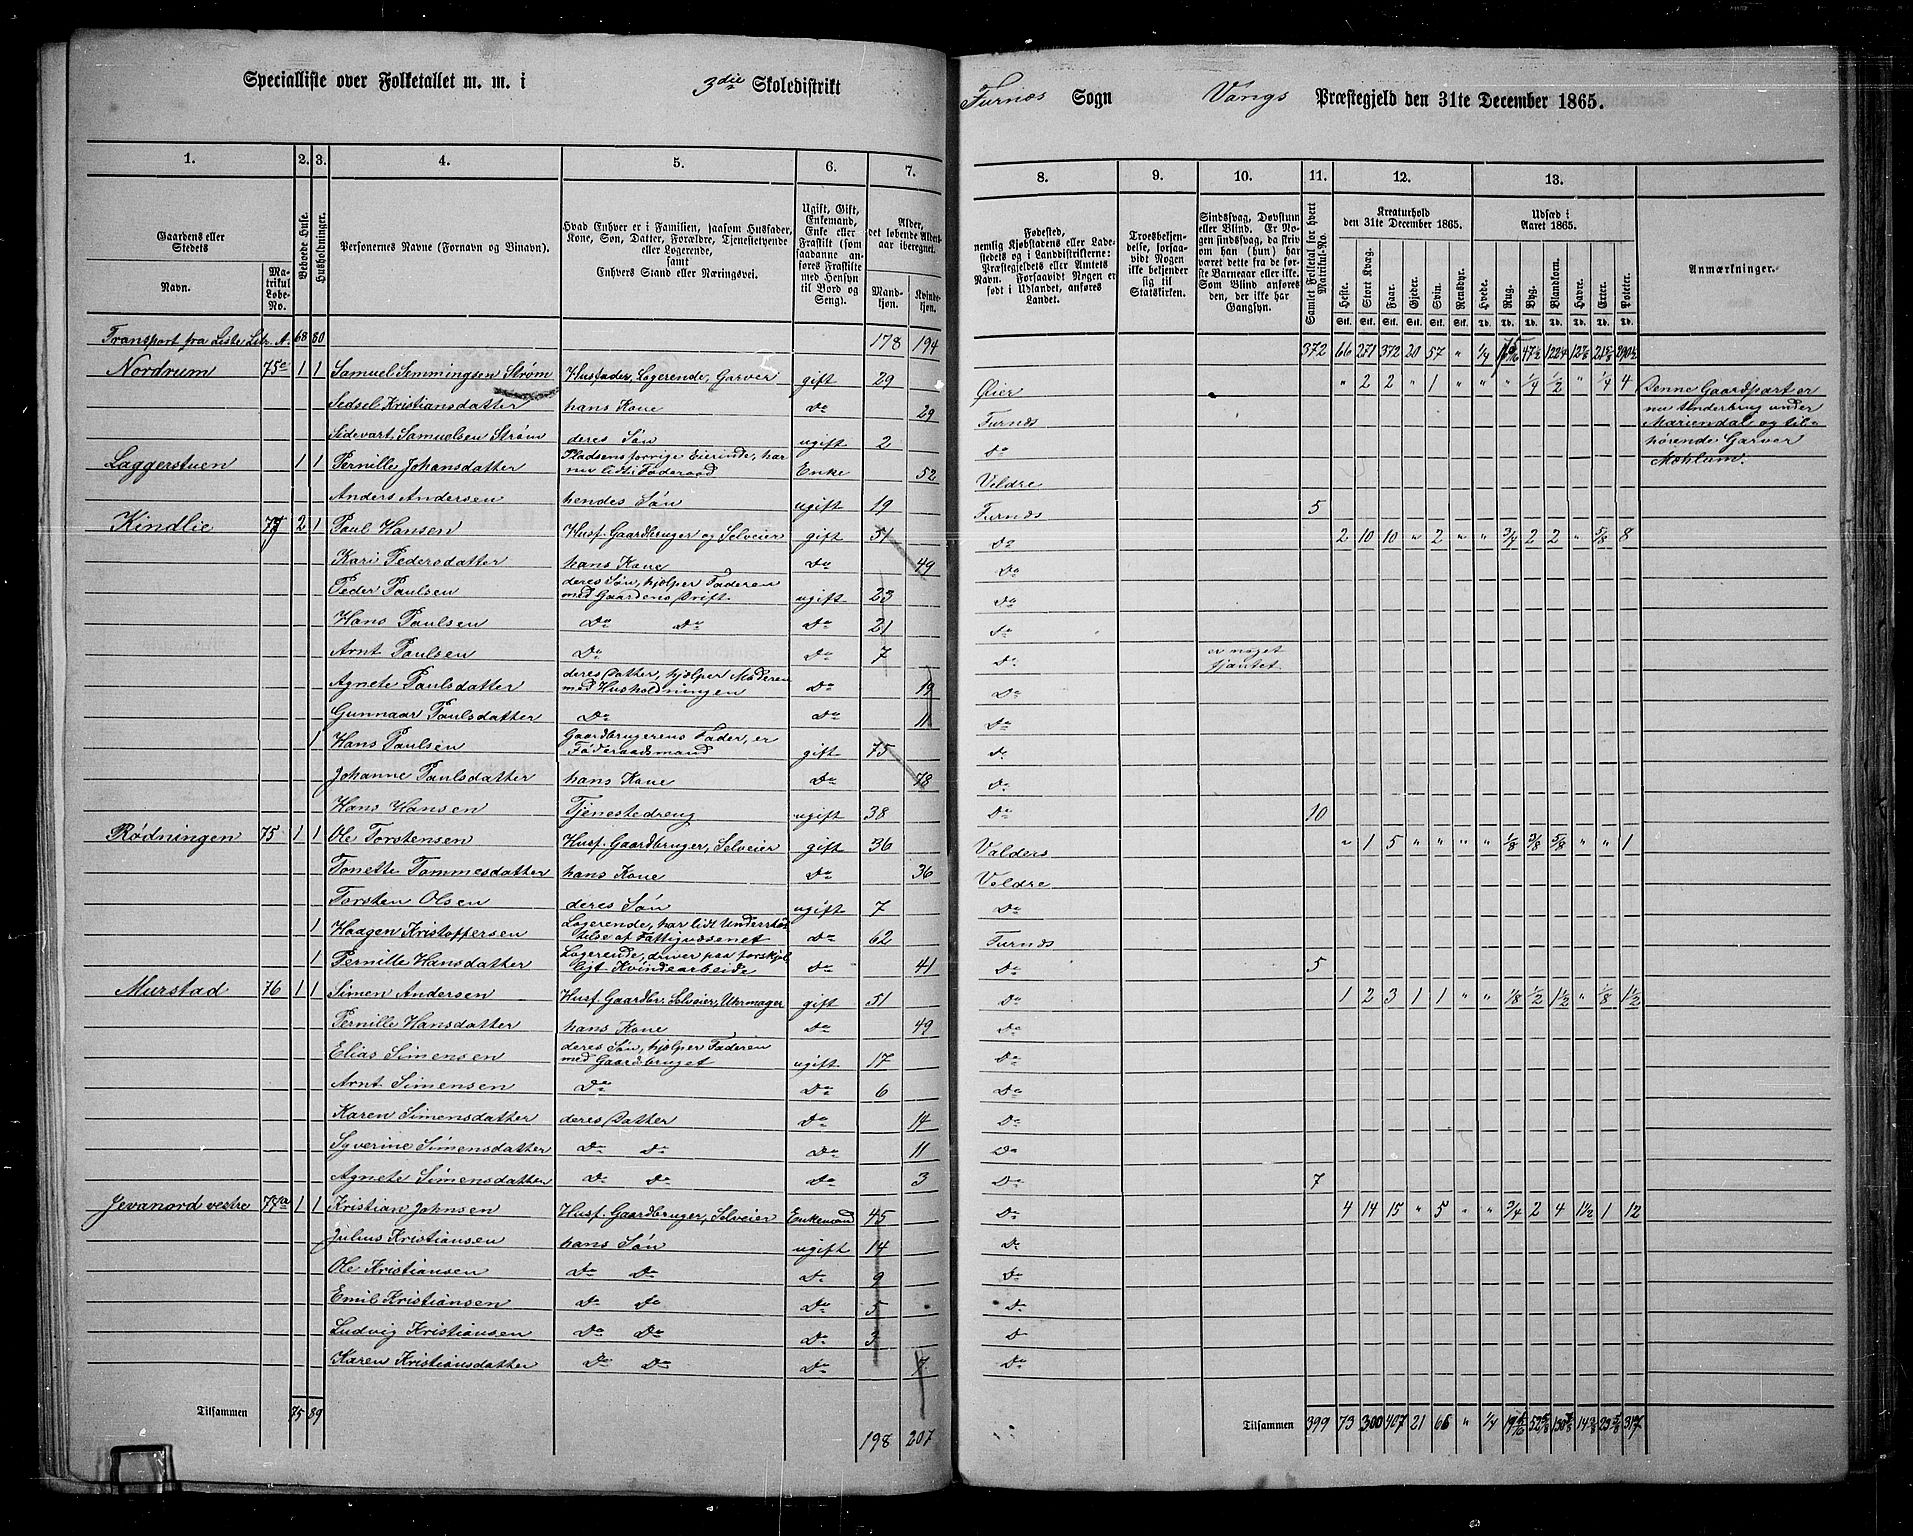 Specialliste over Folketallet m. m. i 3die Skoledistrikt
Furnæs Sogn Vangs Præstegjeld den 31te December 1865.
1. 2. 3. 4. 5. 6. 7.
8. 9. 10. 11. 12. 13.
Gaardens eller Stedets
Navn.
Matrikul Løbe-No.
Beboede Huse.
Husholdninger.
Personernes Navne (Fornavn og Tilnavn).
Hvad Enhver er i Familien, saasom Husfader, Kone, Søn, Datter, Forældre, Tjenestetyende eller Logerende,
samt
Enhvers Stand eller Næringsvei.
Ugift, Gift, Enkemand, Enke eller Fraskilt (som saadanne anføres Fraskilte med Hensyn til Bord og Seng).
Alder, det løbende Alders-aar iberegnet.
Mandkjøn.
Kvindekjøn.
Fødested, nemlig Kjøbstadens eller Ladestedets eller i Landdistrikterne: Præstegjeldets eller Amtets Navn. Forsaavidt Nogen er født i Udlandet, anføres Landet.
Troesbekjendelse, forsaavidt Nogen ikke bekjender sig til Statskirken.
Sindssvag, Døvstum eller Blind. Er Nogen sindssvag, da skrives om han (hun) har været dette fra de første Barneaar eller ikke. Som Blind anføres den, der ikke har Gangsyn.
Samlet Folketal for hvert Matrikul-No.
Kreaturhold den 31te December 1865.
Heste. Stort Kvæg. Faar. Gjeder. Svin. Rensdyr.
Udsæd i Aaret 1865.
Hvede. Rug. Byg. Blandkorn. Havre. Erter. Poteter.
Anmærkninger.
Transport fra Liste Litr. A. 68 80 178 194 372 66 271 372 20 57 " 1/4
Nordrum 75a 1 1 Samuel Semmingsen Strøm Husfader, Logerende, Garver gift 29 Øier " 2 2 " 1 " " " 1/4 1/2 " 1/4 4 Denne Gaardpart er
Sedsel Kristiansdatter hans Kone Do 29 Furnæs nu Underbrug under
Sidevart Samuelsen Strøm deres Søn ugift 2 Do Mariendal og til-
hørende Garver
Laggerstuen 1 1 Pernille Johansdatter Pladsens forrige Eierinde, har nu lidt Føderaad Enke 52 Veldre Mohlum.
Anders Andersen hendes Søn ugift 19 Furnæs 5
Kindlie 77 2 1 Paul Hansen Husf. Gaardbruger og Selveier gift 51 Do 2 10 10 " 2 " " 3/4 2 2 " 5/8 8
Kari Pedersdatter hans Kone Do 49 Do
Peder Paulsen deres Søn, hjælper Faderen med Gaardens Drift ugift 23 Do
Hans Paulsen Do Do Do 21 Do
Arnt Paulsen Do Do 7 Do er noget tjantet
Agnete Paulsdatter deres Datter, hjælper Moderen med Husholdningen Do 19 Do
Gunnaar Paulsdatter Do Do 11 Do
1 Hans Paulsen Gaardbrugerens Fader, er Føderaadsmand gift 75 Do
Johanne Paulsdatter hans Kone Do 78 Do
Hans Hansen Tjenestedreng ugift 38 Do 10
Rødningen 75 1 1 Ole Torstensen Husf. Gaardbruger, Selveier gift 36 Valders " 1 5 " " " " 1/8 3/8 5/8 " " 1
Tonette Tommesdatter hans Kone Do 36 Veldre
Torsten Olsen deres Søn ugift 7 Do
1 Haagen Kristoffersen Logerende, har lidt Understøttelse af Fattigvæsenet Do 62 Furnæs
1 Pernille Hansdatter Logerende, driver paa forskjelligt Kvindearbeide Do 41 Do 5
Murstad 76 1 1 Simen Andersen Husf. Gaardbr. Selveier, Uhrmager gift 51 Do 1 2 3 1 1 " " 1/8 1/2 1 1/2 " 1/8 1 1/2
Pernille Hansdatter hans Kone Do 49 Do
Elias Simensen deres Søn, hjælper Faderen med Gaardbruget ugift 17 Do
Arnt Simensen Do Do 6 Do
Karen Simensdatter deres Datter Do 14 Do
Syverine Simensdatter Do Do Do 11 Do
Agnete Simensdatter Do Do Do 3 Do 7
Jevanord vestre 77a 1 1 Kristian Johnsen Husf. Gaardbruger, Selveier Enkemand 45 Do 4 14 15 " 5 " " 3/4 2 4 1 1/2 1 12
Julius Kristiansen hans Søn ugift 14 Do
Ole Kristiansen Do Do Do 9 Do
Emil Kristiansen Do Do Do 5 Do
Ludvig Kristiansen Do Do Do 3 Do
Karen Kristiansdatter Do Do Do 7 Do
Tilsammen 75 89 198 207 Tilsammen 399 73 300 407 21 66 " 1/4 317